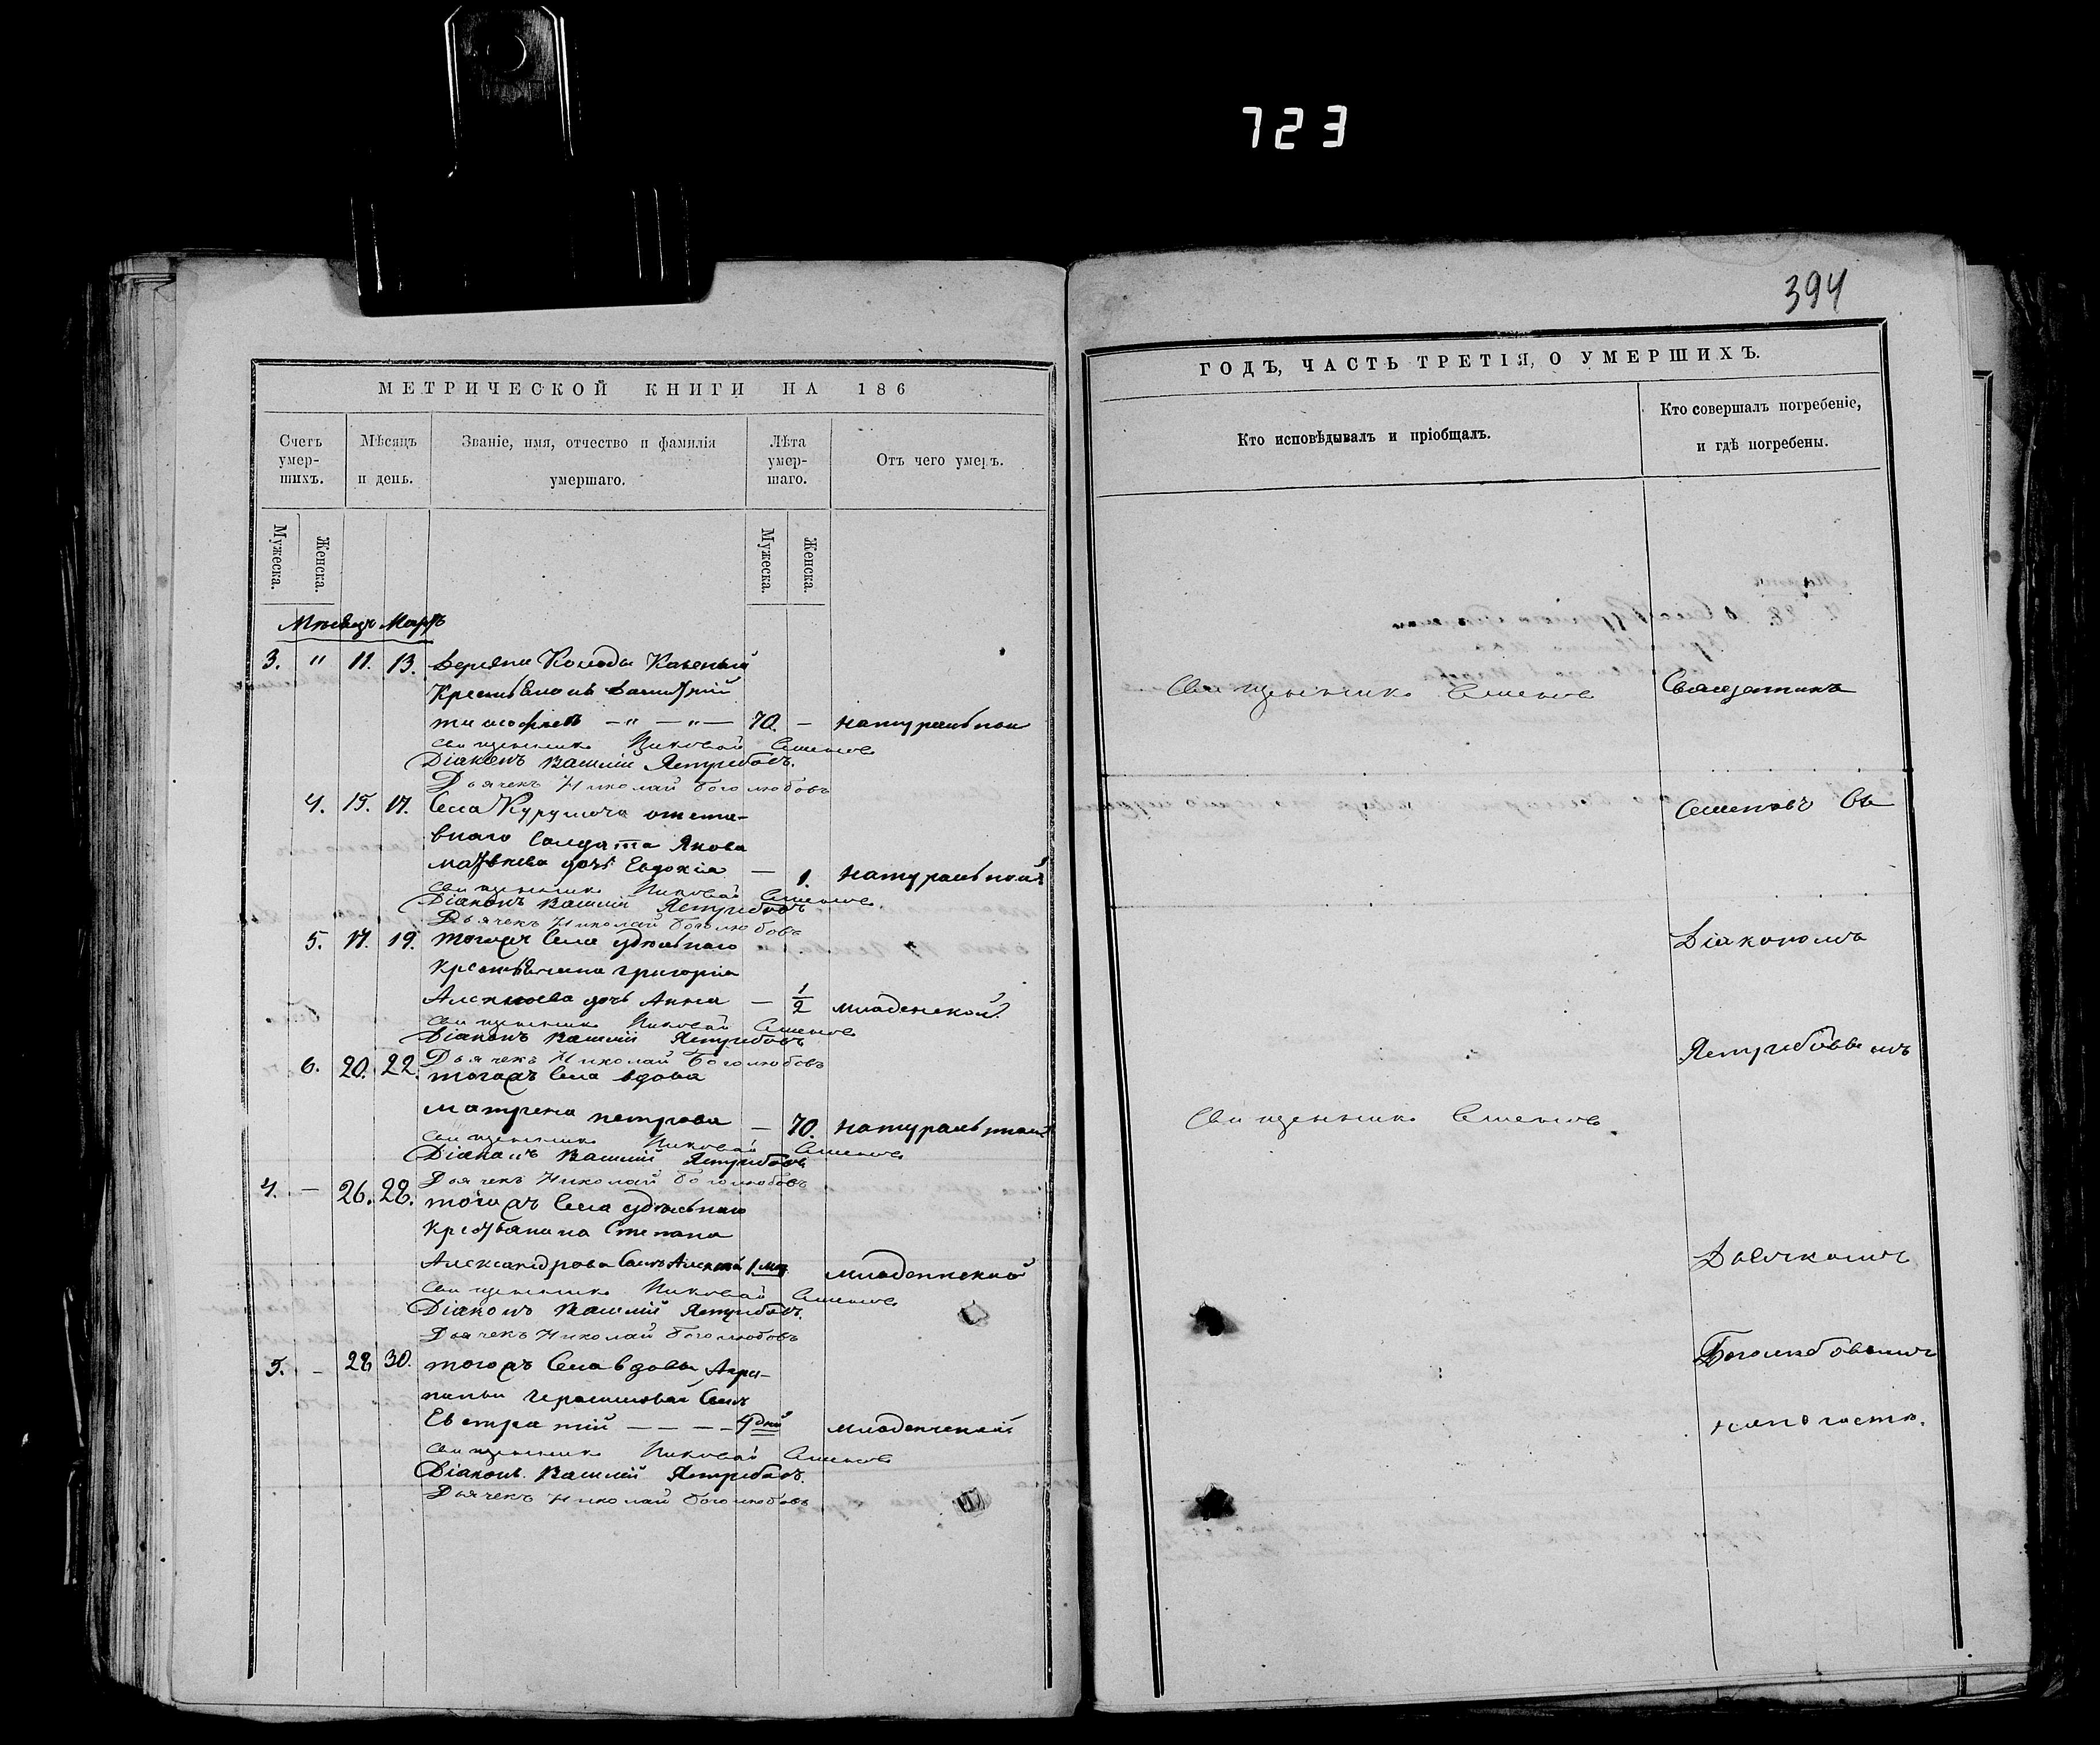 723
394
МЕТРИЧЕСКОЙ КНИГИ НА 186
Счетъ умер-шихъ.
Мѣсяцъ и день.
Званіе, имя, отчество и фамилія умершаго.
Лѣта умер-шаго.
Отъ чего умеръ.
Мужеска.
Женска.
Мужеска.
Женска.
Мѣсяцъ Мартъ
3. " 11. 13. Деревни Казеный
Крестьянинъ
Тимофеевъ — " — " — 70. — натуральной
Священникъ Николай Семеновъ
Діаконъ Василій Ястребовъ.
Дьячекъ Николай Боголюбовъ
4. 15. 17. Села Курумоча отста-
внаго Солдата Якова
Матвеева дочь Евдокія — 1. натуральной
Священникъ Николай Семеновъ
Діаконъ Василій Ястребовъ
Дьячекъ Николай Боголюбовъ
5. 17. 19. тогожъ Села удѣльнаго
крестьянина Григорія
Алексѣева дочь Анна — 1/2 младенской.
Священникъ Николай Семеновъ
Діаконъ Василій Ястребовъ
Дьячекъ Николай Боголюбовъ
6. 20. 22. тогожъ Села вдова
Матрена Петрова — 70. натуральной
Священникъ Николай Семеновъ
Діаконъ Василій Ястребовъ
Дьячекъ Николай Боголюбовъ
4. — 26. 28. тогожъ Села удѣльнаго
крестьянина Степана
Александрова Сынъ 1 мц. младенской
Священникъ Николай Семеновъ
Діаконъ Василій Ястребовъ.
Дьячекъ Николай Боголюбовъ
5. — 28 30. тогожъ Села вдовы Агри-
пины Герасимовой Сынъ
Евстратій — — — 4 дней младенческой
Священникъ Николай Семеновъ
Діаконъ Василій Ястребовъ.
Дьячекъ Николай Боголюбовъ
ГОДЪ, ЧАСТЬ ТРЕТІЯ, О УМЕРШИХЪ.
Кто исповѣдывалъ и пріобщалъ.
Кто совершалъ погребеніе, и гдѣ погребены.
Священникъ Семеновъ
Священникъ
Семеновъ Съ
Діакономъ
Ястребовымъ
Священникъ Семеновъ.
Дьячкомъ
Боголюбовымъ
на погостѣ.